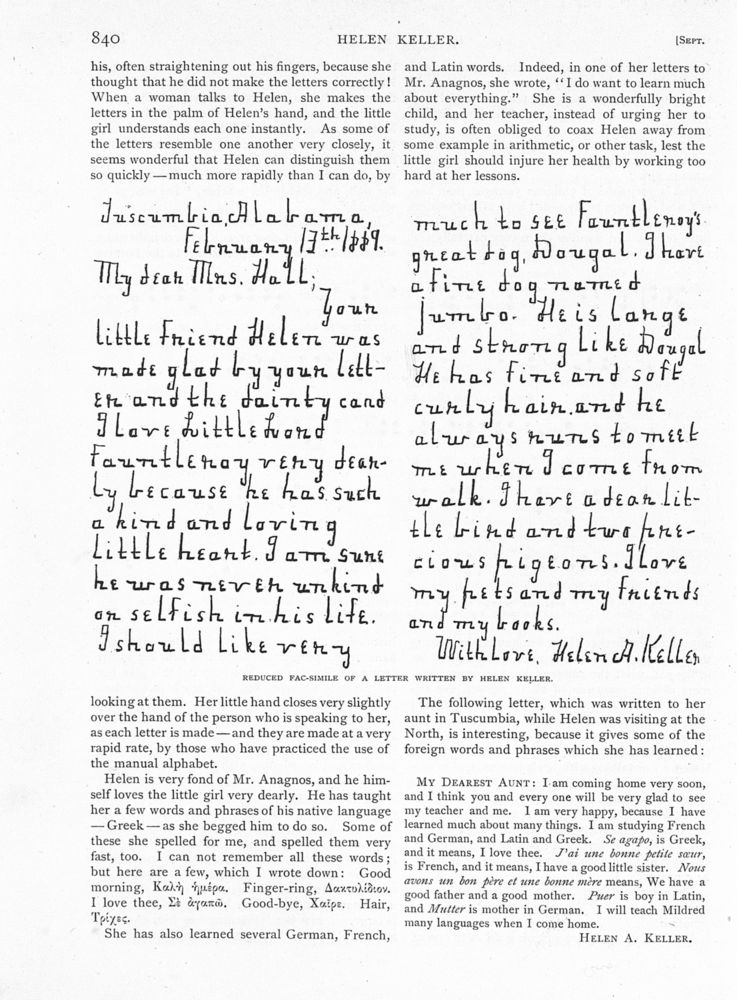 840
HELEN KELLER.
[SEPT.
his, often straightening out his fingers, because she
thought that he did not make the letters correctly!
When a woman talks to Helen, she makes the
letters in the palm of Helen's hand, and the little
girl understands each one instantly. As some of
the letters resemble one another very closely, it
seems wonderful that Helen can distinguish them
so quickly — much more rapidly than I can do, by
and Latin words. Indeed, in one of her letters to
Mr. Anagnos, she wrote, "I do want to learn much
about everything." She is a wonderfully bright
child, and her teacher, instead of urging her to
study, is often obliged to coax Helen away from
some example in arithmetic, or other task, lest the
little girl should injure her health by working too
hard at her lessons.
Tuscumbia, Alabama,
February 13th 1889.
My dear Mrs. Hall;
Your
little friend Helen was
made glad by your lett-
er and the dainty card
I love Little Lord
Fauntleroy very dear-
ly because he has such
a kind and loving
little heart. I am sure
he was never unkind
or selfish in his life.
I should like very
much to see Fauntleroy's
great dog, Dougal. I have
a fine dog named
Jumbo. He is large
and strong like Dougal
He has fine and soft
curly hair, and he
always runs to meet
me when I come from
walk. I have a dear lit-
tle bird and two pre-
cious pigeons. I love
my pets and my friends
and my books.
With Love, Helen A. Keller
REDUCED FAC-SIMILE OF A LETTER WRITTEN BY HELEN KELLER.
looking at them. Her little hand closes very slightly
over the hand of the person who is speaking to her,
as each letter is made — and they are made at a very
rapid rate, by those who have practiced the use of
the manual alphabet.
Helen is very fond of Mr. Anagnos, and he him-
self loves the little girl very dearly. He has taught
her a few words and phrases of his native language
— Greek — as she begged him to do so. Some of
these she spelled for me, and spelled them very
fast, too. I can not remember all these words;
but here are a few, which I wrote down: Good
morning, Καλὴ ἡμέρα. Finger-ring, Δακτυλίδιον.
I love thee, Σὲ ἀγαπῶ. Good-bye, Χαῖρε. Hair,
Τρίχες.
She has also learned several German, French,
The following letter, which was written to her
aunt in Tuscumbia, while Helen was visiting at the
North, is interesting, because it gives some of the
foreign words and phrases which she has learned:
MY DEAREST AUNT: I am coming home very soon,
and I think you and every one will be very glad to see
my teacher and me. I am very happy, because I have
learned much about many things. I am studying French
and German, and Latin and Greek. Se agapo, is Greek,
and it means, I love thee. J'ai une bonne petite sœur,
is French, and it means, I have a good little sister. Nous
avons un bon père et une bonne mère means, We have a
good father and a good mother. Puer is boy in Latin,
and Mutter is mother in German. I will teach Mildred
many languages when I come home.
HELEN A. KELLER.